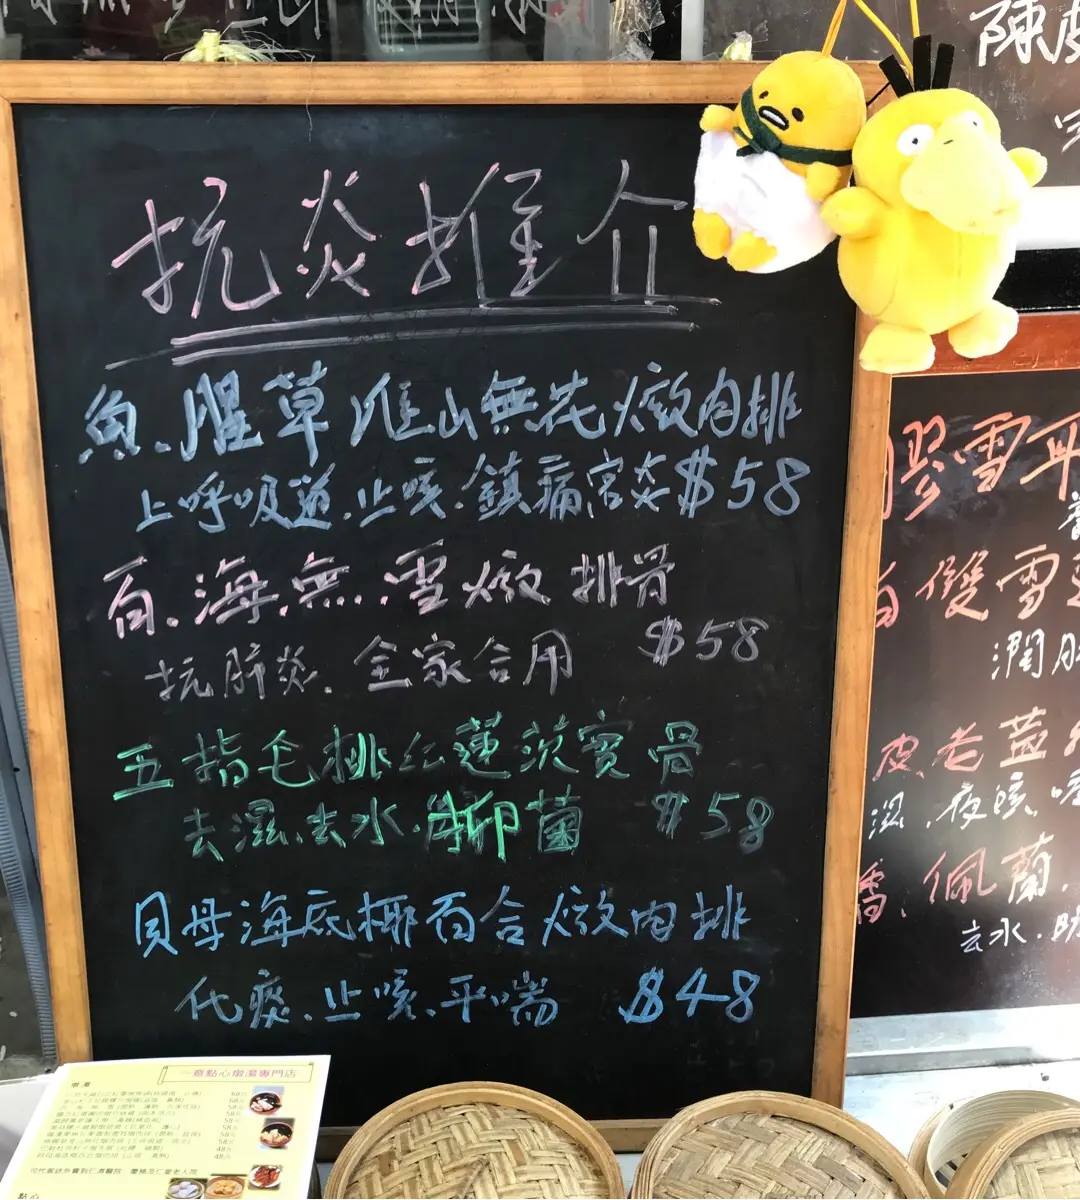 抗炎推介
魚腥草淮山無花燉肉排
上呼吸道.止咳.鎮痛害炎$58
百.海.無.雪燉排骨
$58
抗肺炎.全家合用
五指毛桃红蓮茨寳骨
去濕.去水.抑菌 $58
貝母海底椰百合燉肉排
代痰.止咳.平喘 $48
陳皮
膠雪耳
雙雪蓮
潤肺
皮老藍
濕.夜咳
佩蘭.
去水.
一意點心燉湯專門店
燉湯
點心